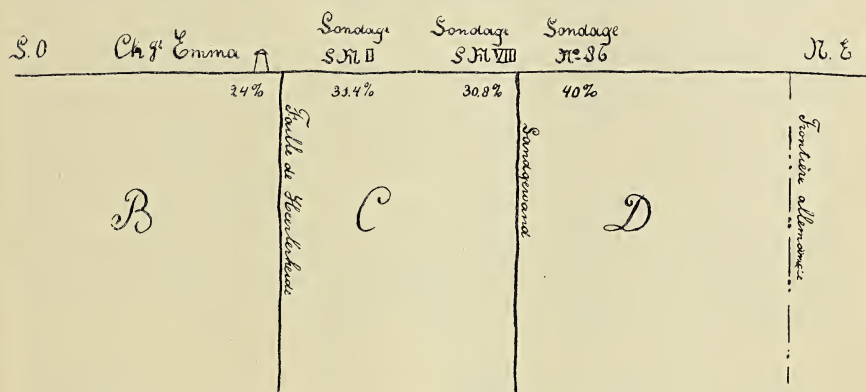 S.O
Ch ge Emma
Sondage
S M II
Sondage
S M VIII
Sondage
No 86
N. E
24%
31.4%
30.8%
40%
Faille de Heerlerheide
Sandgewand
Frontière allemande
B
C
D